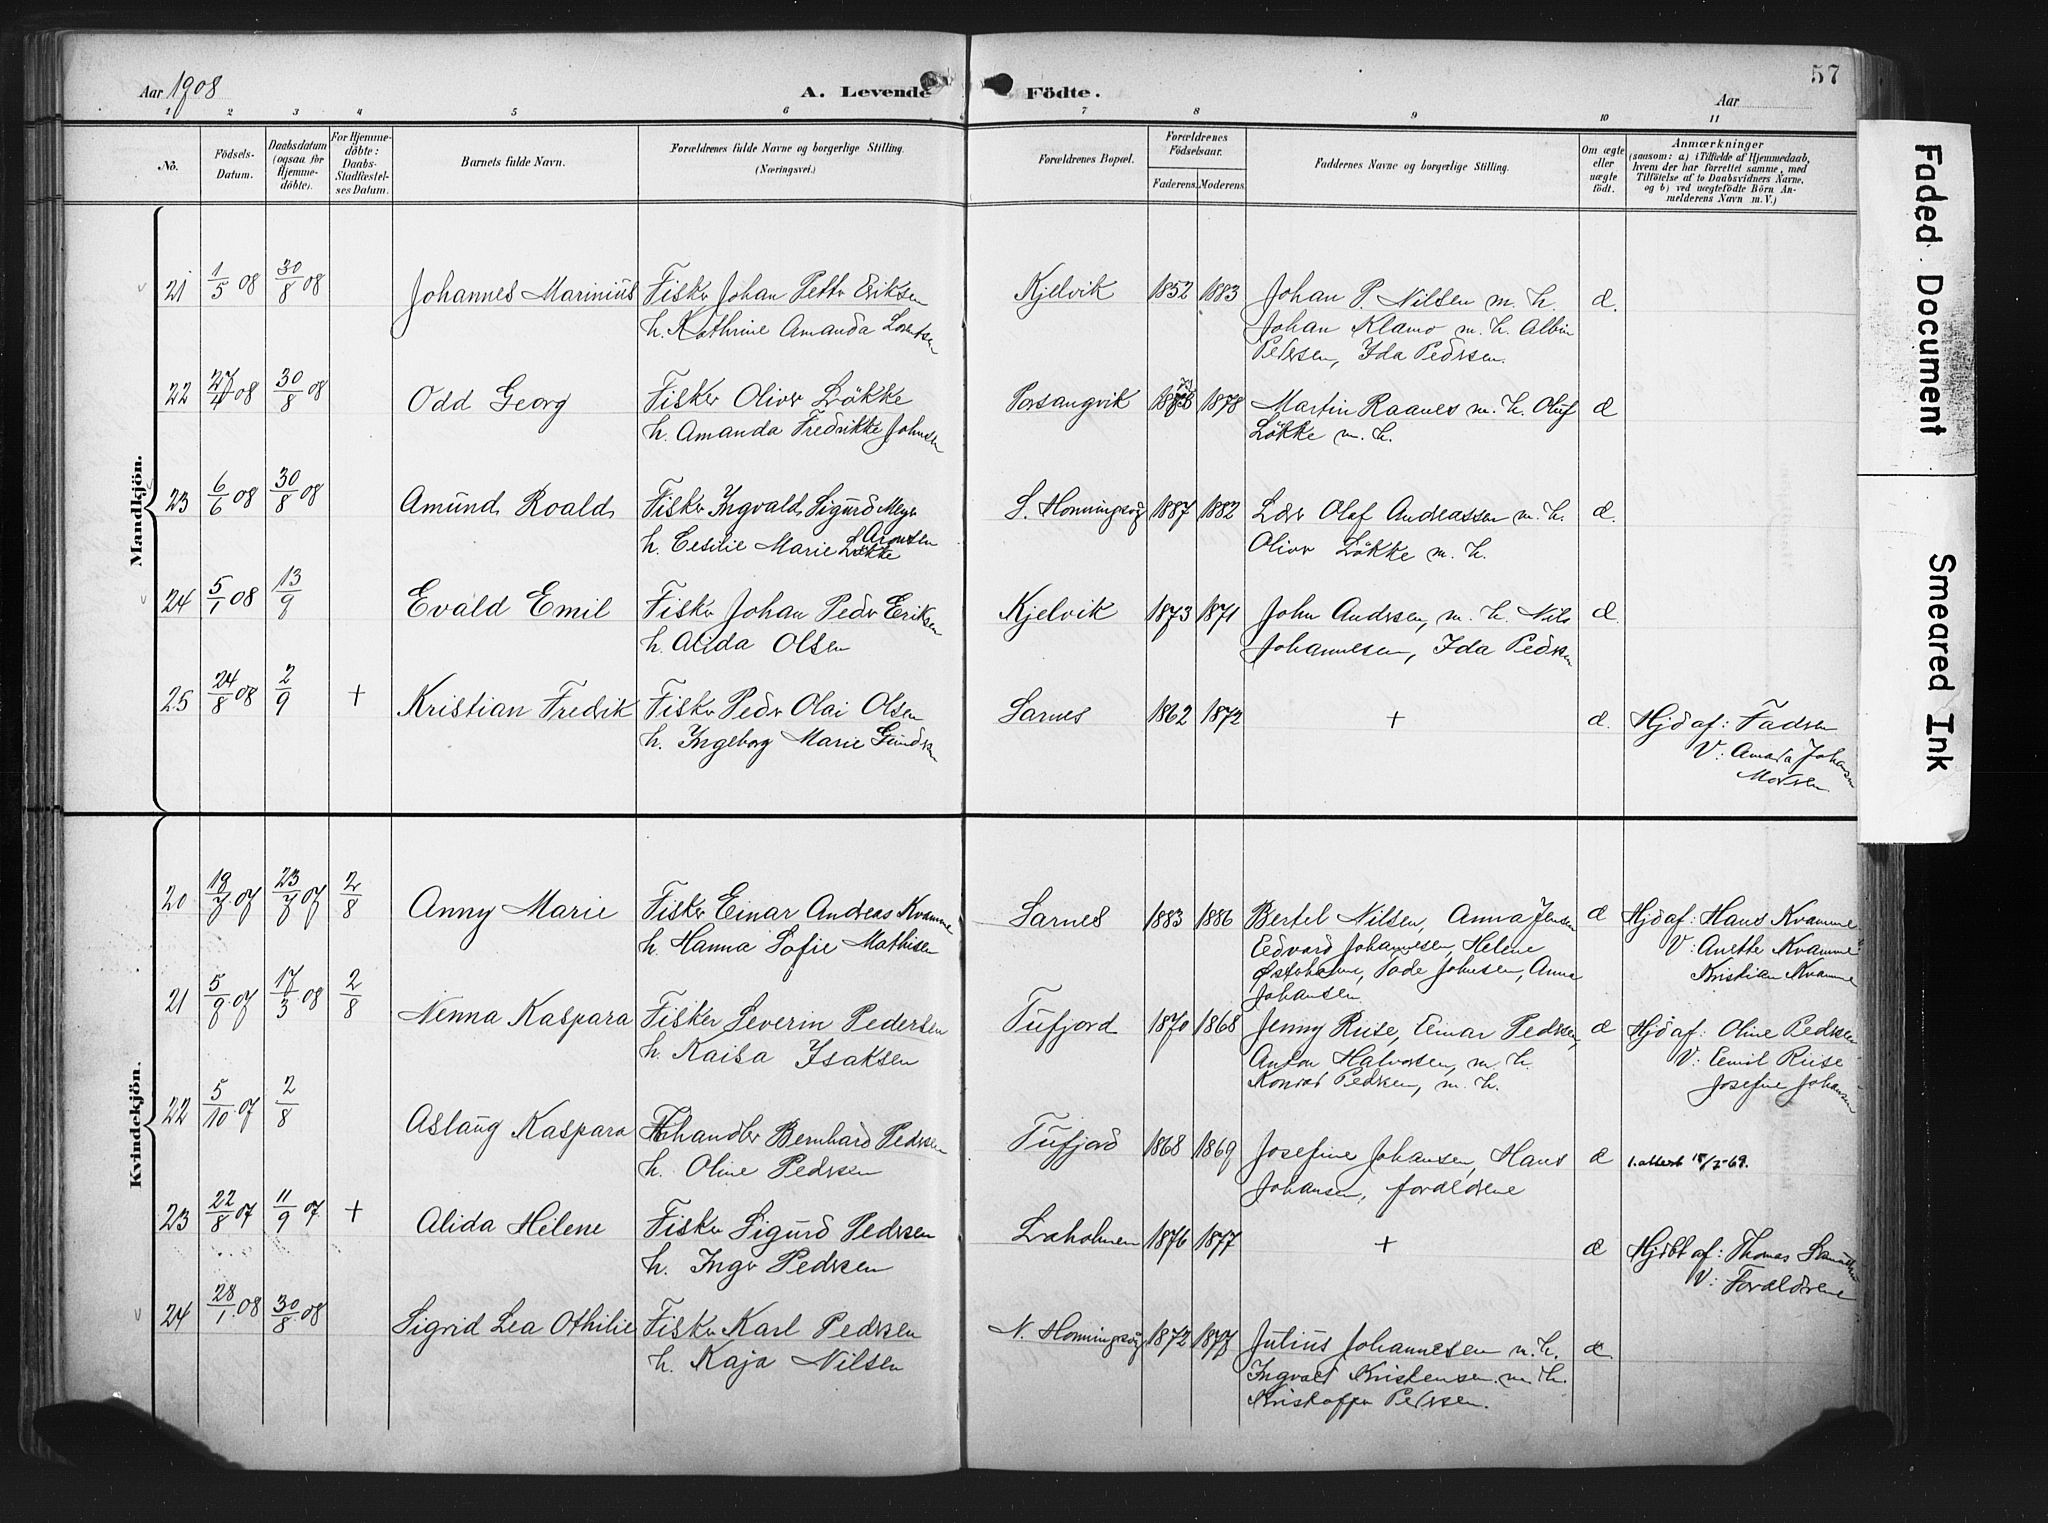 Aar 1908
A. Levende Födte.
Aar
57
1 2 3 4 5 6 7 8 9 10 11
No.
Födsels-Datum.
Daabsdatum (ogsaa for Hjemme-döbte).
For Hjemme-döbte: Daabs-Stadfæstel-ses Datum.
Barnets fulde Navn.
Forældrenes fulde Navne og borgerlige Stilling.
(Næringsvei.)
Forældrenes Bopæl.
Forældrenes Födselsaar.
Faderens. Moderens.
Faddernes Navne og borgerlige Stilling.
Om ægte eller uægte födt.
Anmærkninger
(saasom: a) i Tilfælde af Hjemmedaab,
hvem der har forrettet samme, med
Tilföielse af to Daabsvidners Navne,
og b) ved uægtefödte Börn An-
melderens Navn m. V.)
Mandkjön.
21 1/5 08 30/8 08 Johannes Marinius Fisker Johan Petter Eriksen Kjelvik 1852 1883 Johan P. Nilsen m. h. d.
h. Kathrine Amanda Lorentsen Johan Klamo m. h. Albin
Pedersen, Ida Pedersen.
22 27/4 08 30/8 08 Odd Georg Fisker Oliver Løkke Porsangvik 1878 Martin Raanes m. h. Oluf d
h. Amanda Fredrikke Johnsen Løkke m. h.
23 6/6 08 30/8 08 Amund Roald Fisker Ingvald Sigurd Meyer S. Honningsvåg 1887 1882 Lærer Olaf Andreassen m. h. d.
h. Cesilie Marie Løkke Aronsen Oliver Løkke m. h.
24 5/1 08 13/9 Evald Emil Fisker Johan Peder Eriksen Kjelvik 1873 1871 John Andersen, m. h. Nils d.
h. Alida Olsen Johannesen, Ida Pedersen
25 24/8 08 2/9 + Kristian Fredrik Fisker Peder Olai Olsen Sarnes 1862 1872 + d. Hjd af: Faderen
h. Ingeborg Marie Gundersen V: Amanda Johansen
Moderen.
Kvindekjön.
20 19/7 07 23/7 07 2/8 Anny Marie Fisker Einar Andreas Kvamme Sarnes 1883 1886 Bertel Nilsen, Anna Jensen d Hjd af: Hans Kvamme
h. Hanna Sofie Mathisen Edvard Johannesen, Helene V: Anette Kvamme
Johansen Kristian Kvamme
21 5/9 07 17/3 08 2/8 Nenna Kaspara Fisker Severin Pedersen Tufjord 1870 1868 Jenny Riise, Einar Pedersen, d Hjd af: Oline Pedersen
h. Kaisa Isaksen Anton Halvorsen, m. h. V: Emil Riise
Konrad Pedersen, m. h. Josefine Johansen
22 5/10 07 2/8 Aslaug Kaspara handler Bernhard Pedersen Tufjord 1868 1869 Josefine Johansen, Hans d 1. attest 15/7-69.
h. Oline Pedersen Johansen, forældrene
23 22/8 07 11/9 07 + Alida Helene Fisker Sigurd Pedersen Laholmen 1876 1877 + d Hjdbt af: Thomas
h. Inger Pedersen V: Forældrene
24 28/1 08 30/8 08 Sigrid Lea Othilie Fisker Karl Pedersen N. Honningsvåg 1872 1877 Julius Johannesen m. h. d
h. Kaja Nilsen Ingvald Kristensen m. h.
Kristoffer Pedersen.
Faded Document
Smeared Ink